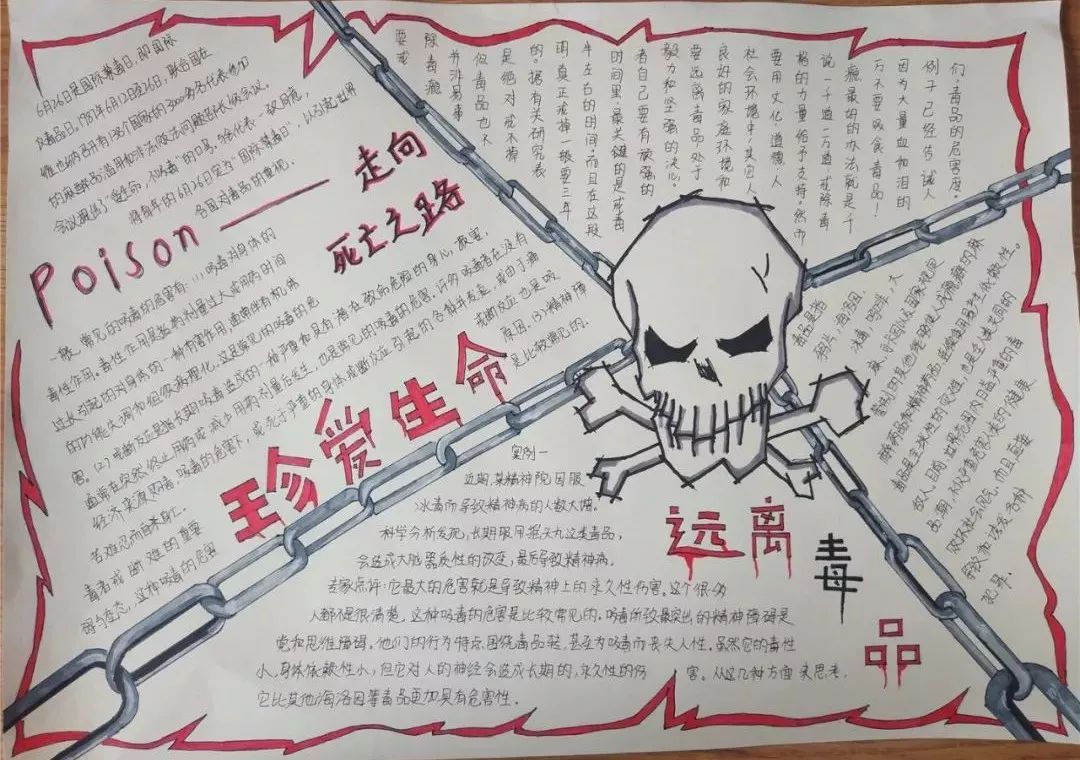 6月26日是国际禁毒日,即国际
反毒品日。1987年6月12日至26日,联合国在
维也纳召开有138个国家的3000多名代表参加
的麻醉品滥用和非法贩运问题部长级会议。
会议提出了"爱生命,不吸毒"的口号。与会代表一致同意,
将每年的6月26日定为"国际禁毒日",以引起世界
各国对毒品的重视。
Poison——走向
死亡之路
一般,常见的吸毒的危害有:(1)吸毒对身体的
毒性作用。毒性作用是指用药剂量过大或用药时间
过长引起的对身体的一种有害作用,通常伴有机体
的功能失调和组织病理变化。这是常见的吸毒的危
害。(2)戒断反应是指长期吸毒造成的一种严重和具有潜在致命危险的身心损害,
通常在突然终止用药或减少用药剂量后发生。也是常见的吸毒的危害。许多吸毒者在没有
经济来源购毒、吸毒的危害下,或死于严重的身体戒断反应引起的各种并发症,或由于痛
苦难忍而自杀身亡。
戒断反应也是吸
毒者戒断难的重要
原因。(3)精神障
碍与变态,这种吸毒的危害
是比较常见的。
珍爱生命
们,毒品的危害度。
例子已经告诫人
因为大量血和泪的
万不要吸食毒品!
瘾最好的办法就是千
说一千道一万道,戒除毒
格的力量给予支持。然而
要用文化、道德、人
社会环境中,其它人
良好的家庭环境和
要远离毒品处于
毅力和坚强的决心。
者自己要有顽强的
时间里,最关键的是戒毒
年左右的时间,而且在这段
明真正戒掉一般要三年
的。据有关研究表
是绝对戒不掉
但毒品也不
并非易事
除毒瘾
要戒
实例一
近期,某精神院因服
冰毒而导致精神病的人数大增。
科学分析发现,长期服用摇头丸这类毒品,
会造成大脑器质性的改变,最后导致精神病。
专家点评:它最大的危害就是导致精神上的永久性伤害。这个很多
人都不是很清楚。这种吸毒的危害是比较常见的。吸毒所致最突出的精神障碍是
觉和思维障碍。他们的行为特点围绕毒品转,甚至为吸毒而丧失人性。虽然它的毒性
小,身体依赖性小,但它对人的神经会造成长期的,永久性的伤
害。从这几种方面来思考,
它比其他海洛因等毒品更加具有危害性。
毒品是指
鸦片,海洛因,
冰毒,吗啡,大
麻,可卡因以及国家规定
管制的其他能够使人成瘾癖的麻
醉药品和精神药品,连续使用易产生依赖性。
毒品是全球性的灾难,也是全人类共同的
敌人。目前,世界范围内日益严重的毒
品潮,不仅严重危害人类的健康
败坏社会风气,而且直接
导致和诱发各种
犯罪。
远离
毒
品